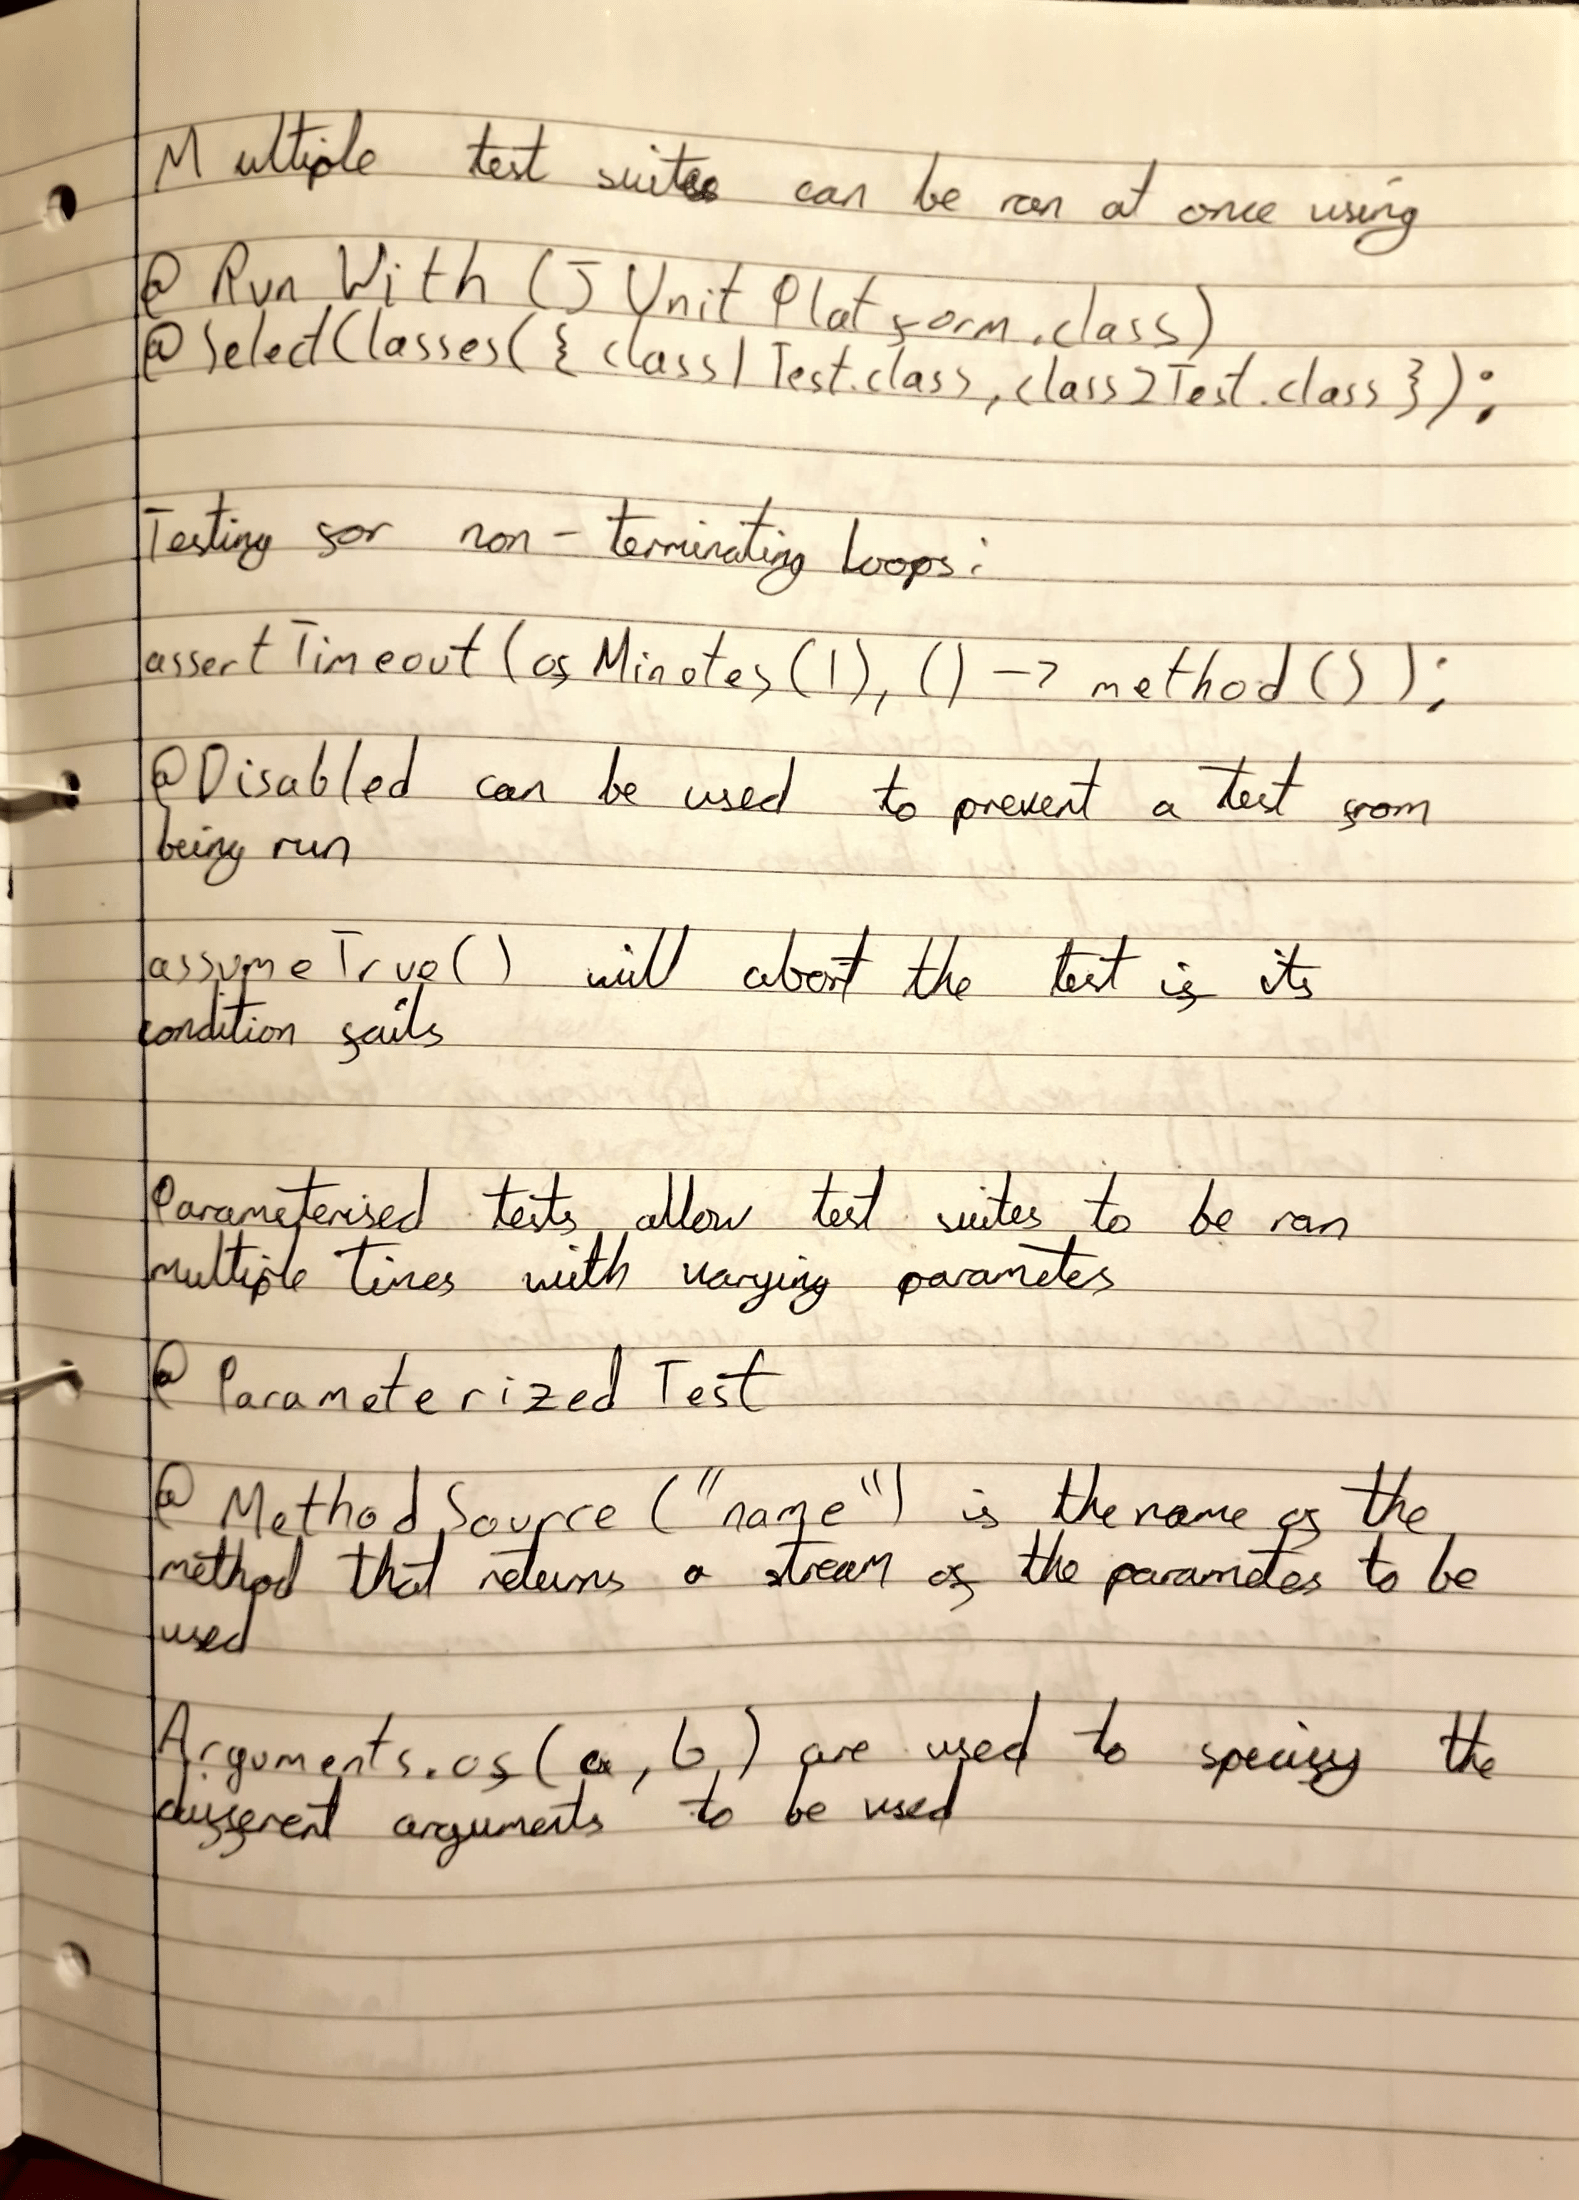 Multiple test suites can be ran at once using
@RunWith(JUnitPlatform.class)
@SelectClasses({class1Test.class, class2Test.class});
Testing for non-terminating loops:
assertTimeout(ofMinutes(1), () -> method());
@Disabled can be used to prevent a test from
being run
assumeTrue() will abort the test if its
condition fails
Parameterised tests allow test suites to be ran
multiple times with varying parametes
@ParameterizedTest
@MethodSource("name") is the name of the
method that returns a stream of the parametes to be
used
Arguments.of(a, b) are used to specify the
different arguments to be used